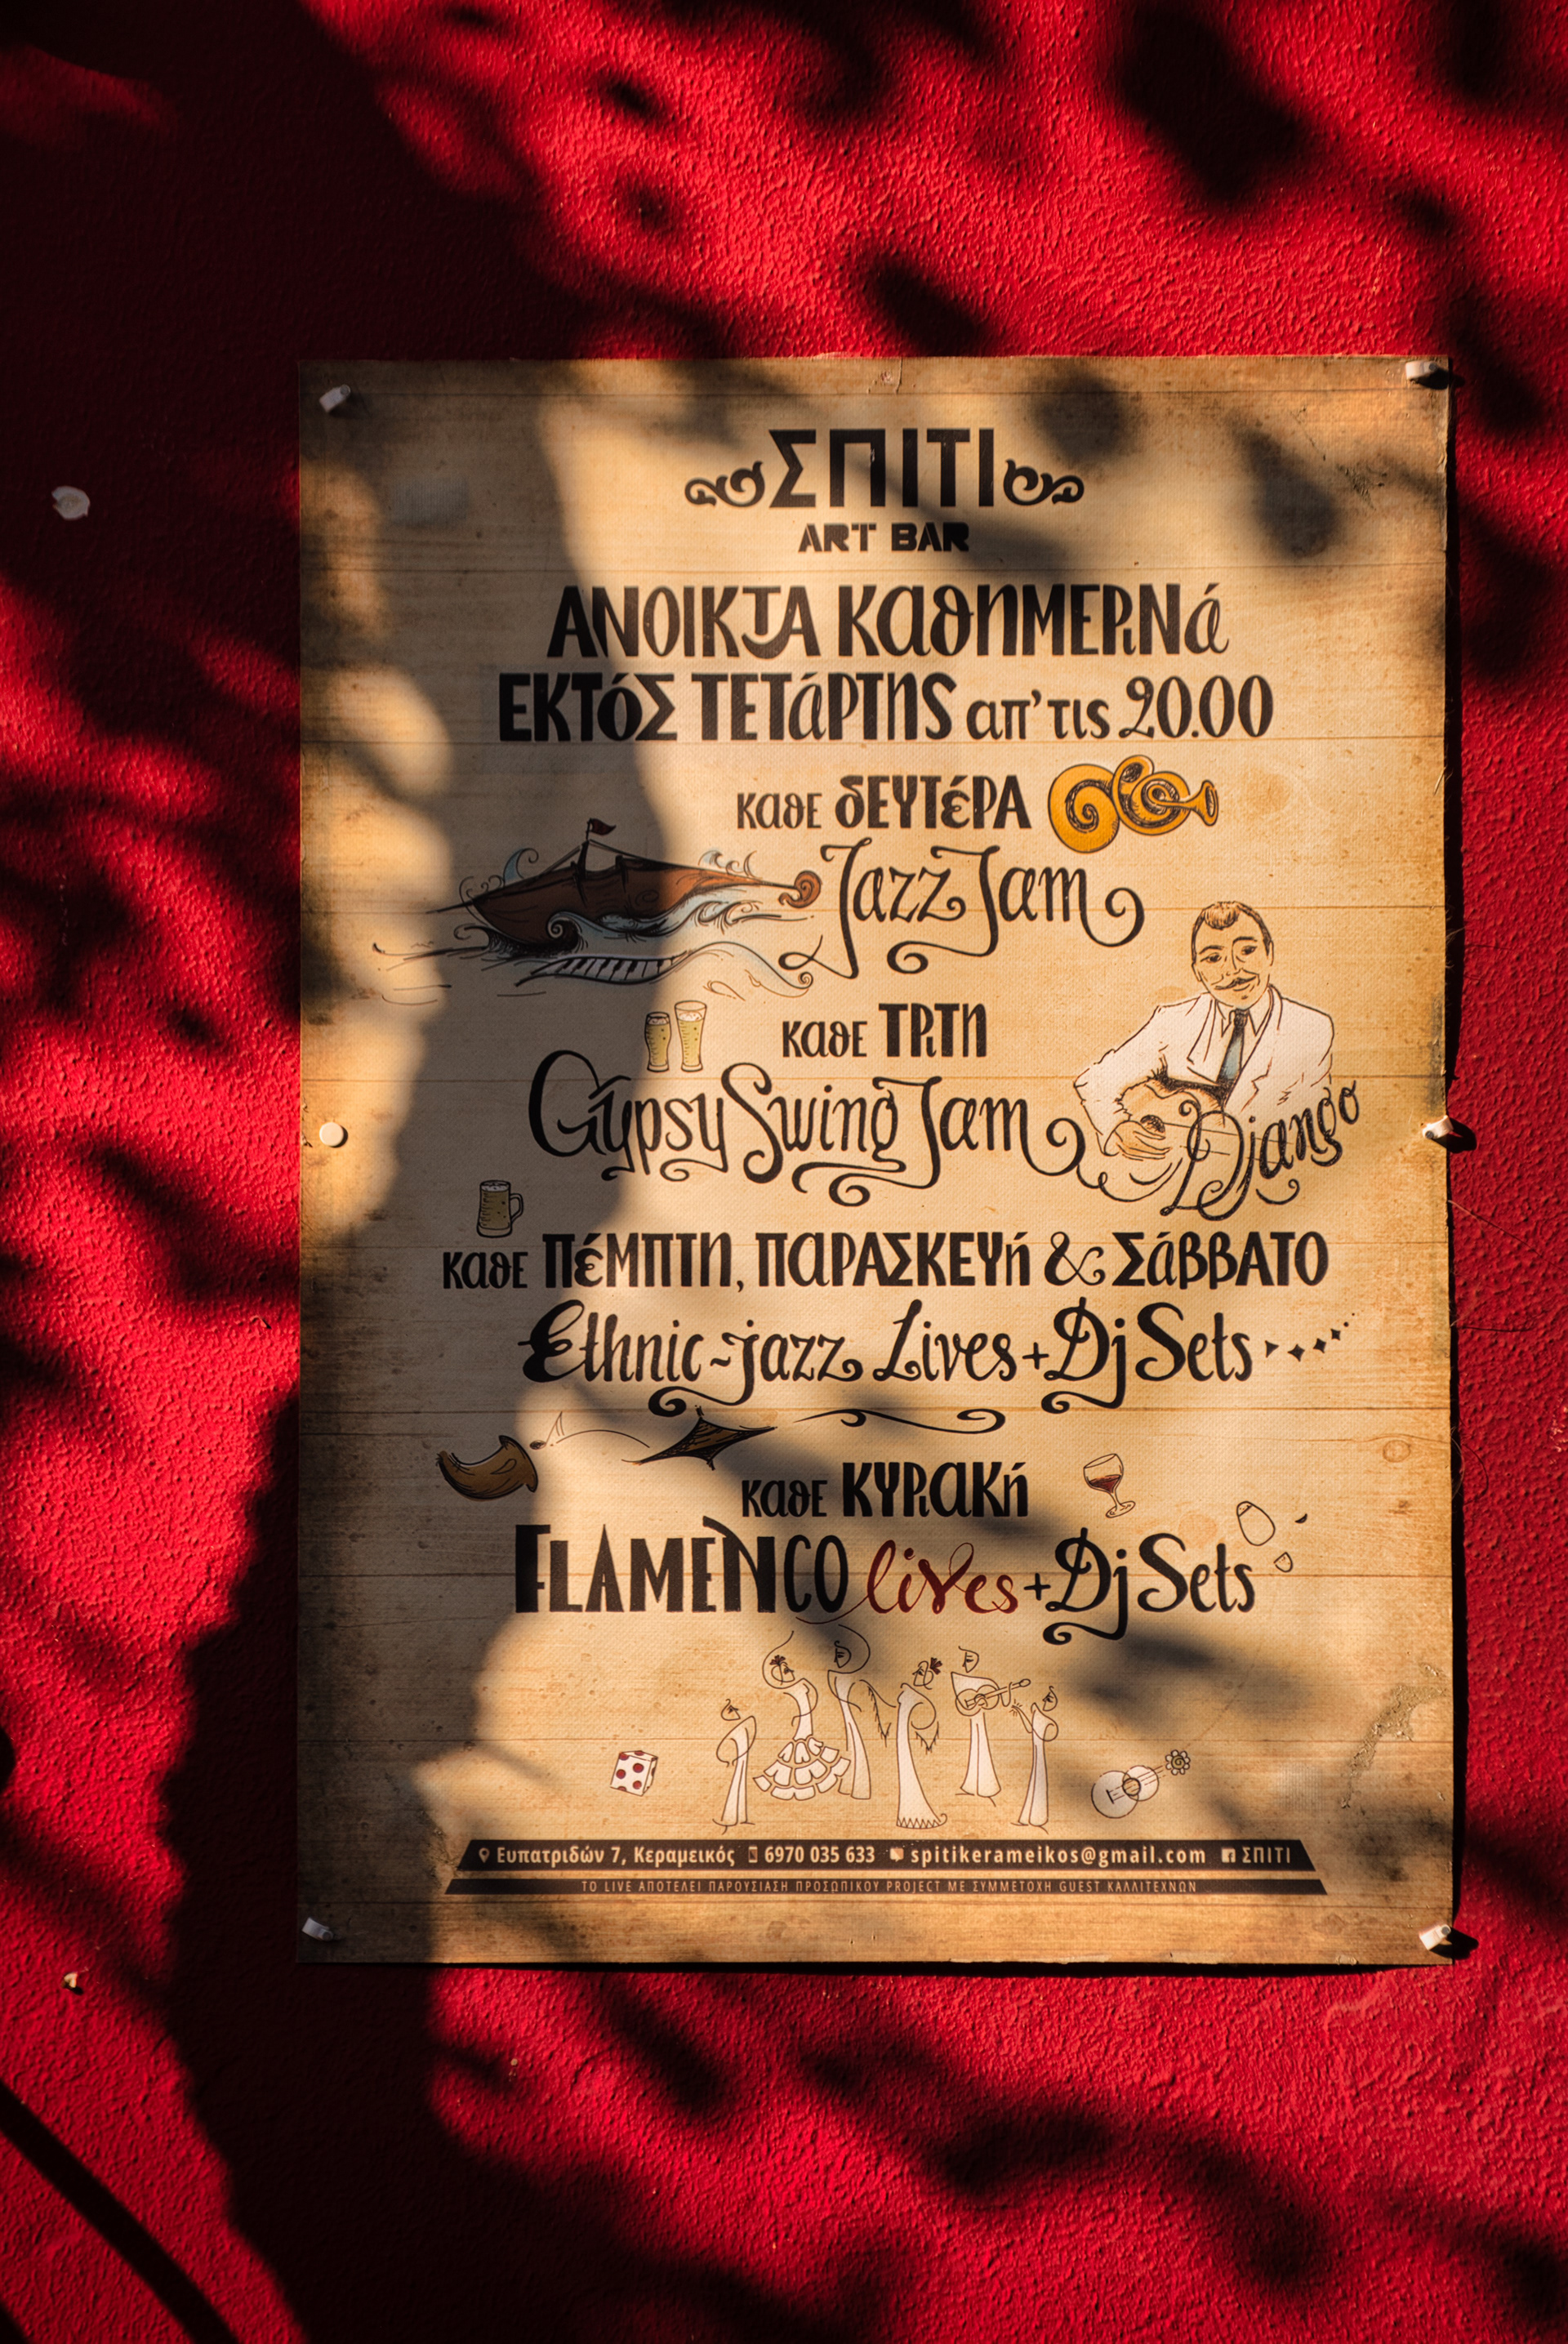 ΣΠΙΤΙ
ART BAR
ΑΝΟΙΚΤΑ ΚαθηΜΕΡιΝά
ΕΚΤόΣ ΤΕΤάΡΤηΣ απ' τις 20.00
καθε δΕΥΤέΡΑ
Jazz Jam
καθε ΤΡιΤη
Gypsy Swing Jam
Django
καθε ΠέΜΠΤη, ΠαΡΑΣΚΕΥή & ΣάββΑΤΟ
Ethnic~jazz Lives+Dj Sets
καθε ΚΥΡιαΚή
FLAMENCO lives+Dj Sets
Ευπατριδών 7, Κεραμεικός 6970 035 633 spitikerameikos@gmail.com f ΣΠΙΤΙ
ΤΟ LIVE ΑΠΟΤΕΛΕΙ ΠΑΡΟΥΣΙΑΣΗ ΠΡΟΣΩΠΙΚΟΥ PROJECT ΜΕ ΣΥΜΜΕΤΟΧΗ GUEST ΚΑΛΛΙΤΕΧΝΩΝ